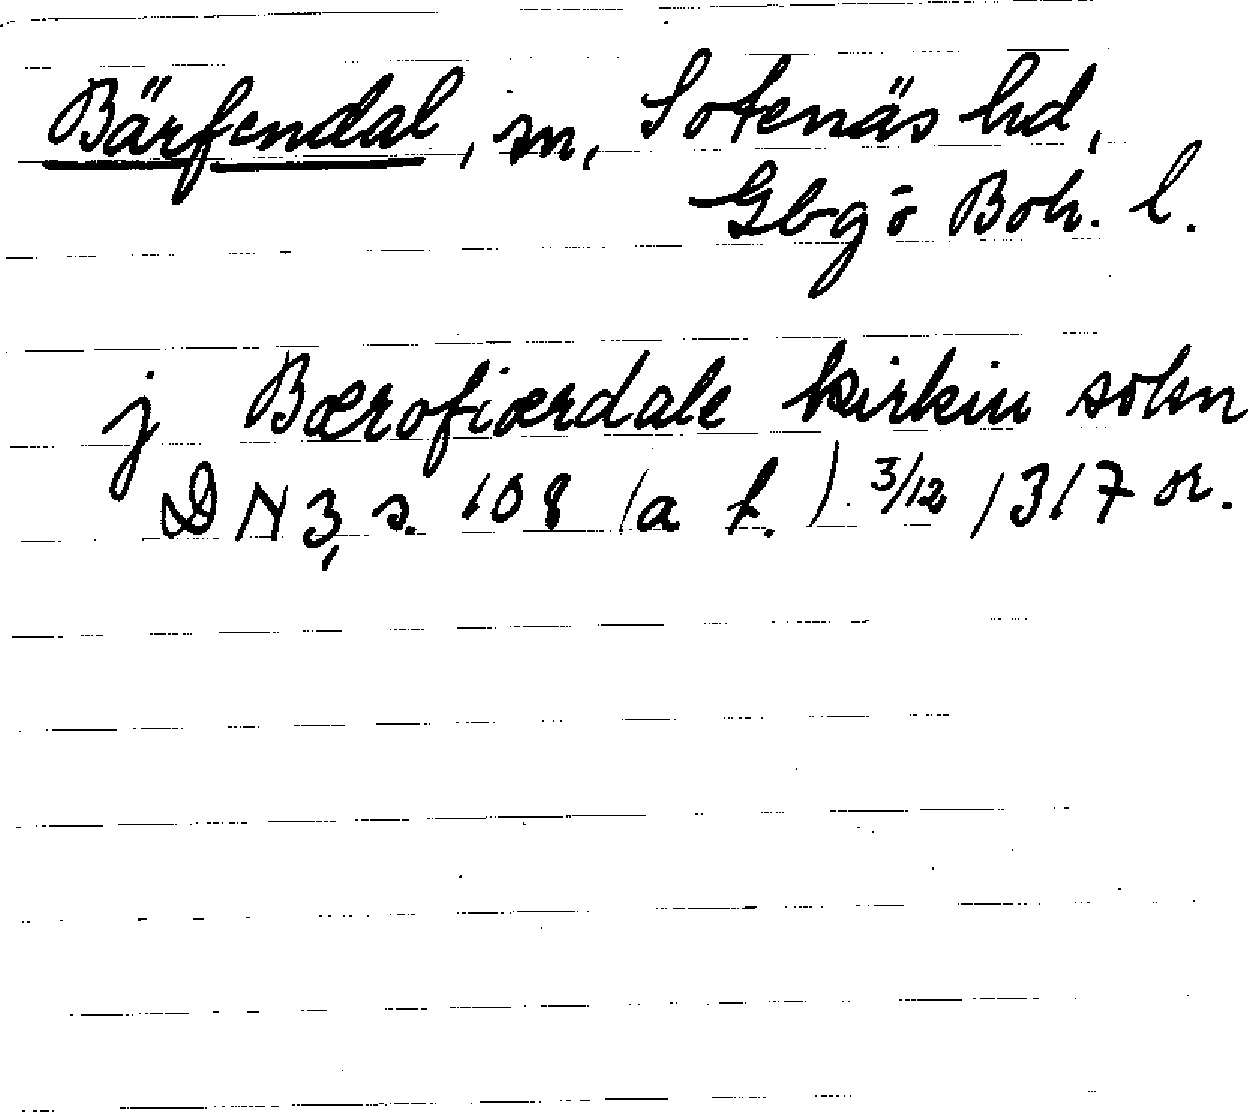 Bärfendal, sn, Sotenäs hd,
Gbg ō Boh. l.
j Bærofiærdale kirkiu sokn
DN 3, s. 108 (a f.) 3/12 1317 or.